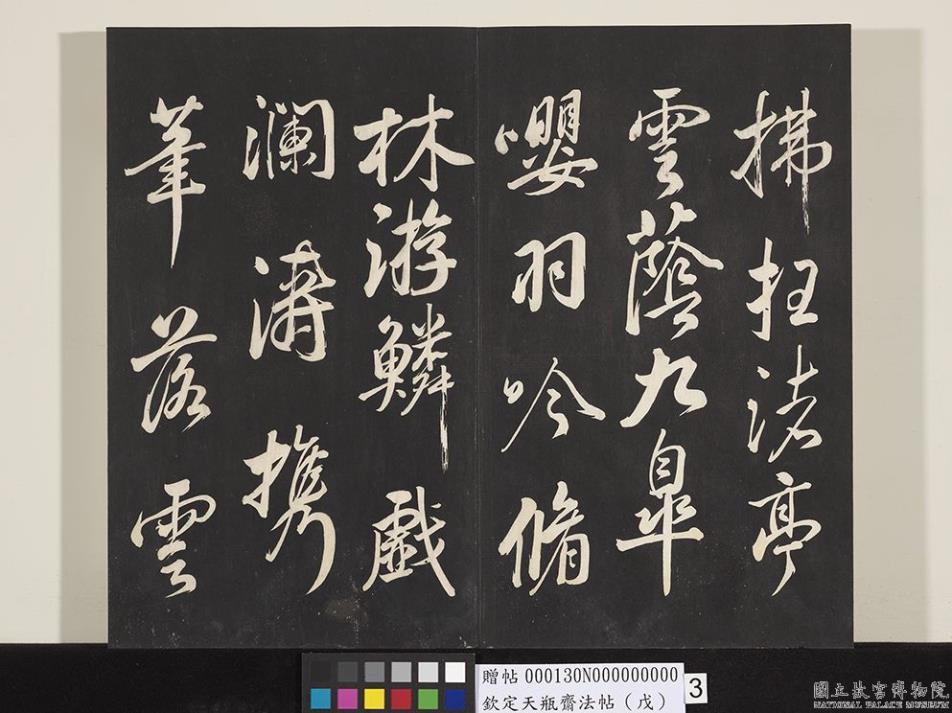 拂枉渚亭
雲蔭九皐
嚶羽吟脩
林游鱗戲
瀾濤携
筆落雲
贈帖 000130N000000000
欽定天瓶齋法帖（戊）
3
國立故宮博物院
NATIONAL PALACE MUSEUM